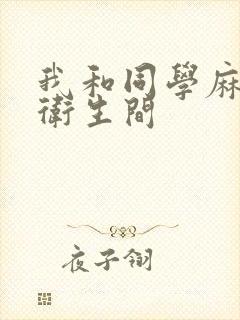 我和同學麻
衛生間
夜子翎